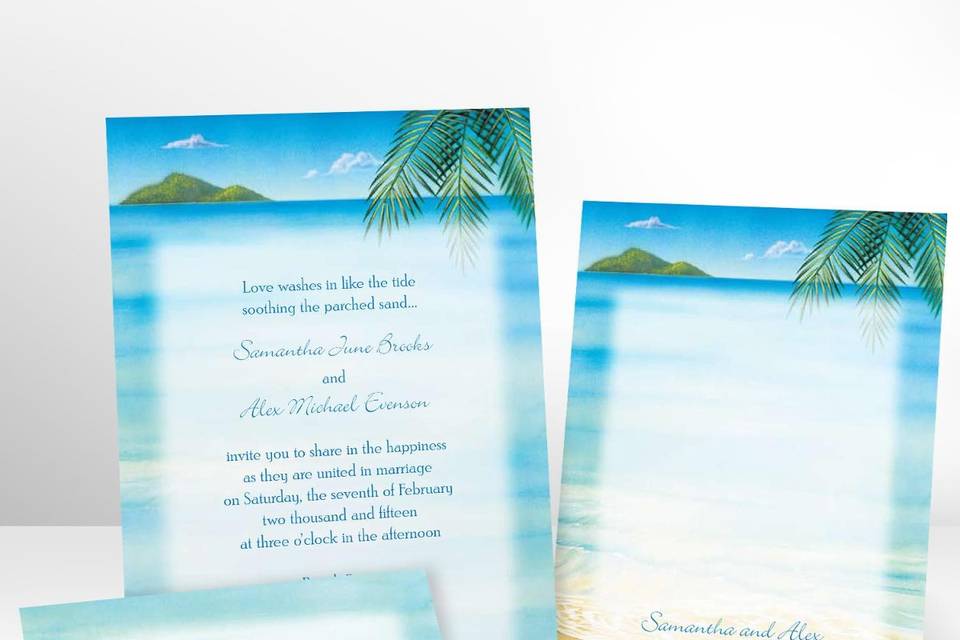 Love washes in like the tide
soothing the parched sand...
Samantha June Brooks
and
Alex Michael Evenson
invite you to share in the happiness
as they are united in marriage
on Saturday, the seventh of February
two thousand and fifteen
at three o'clock in the afternoon
Samantha and Alex